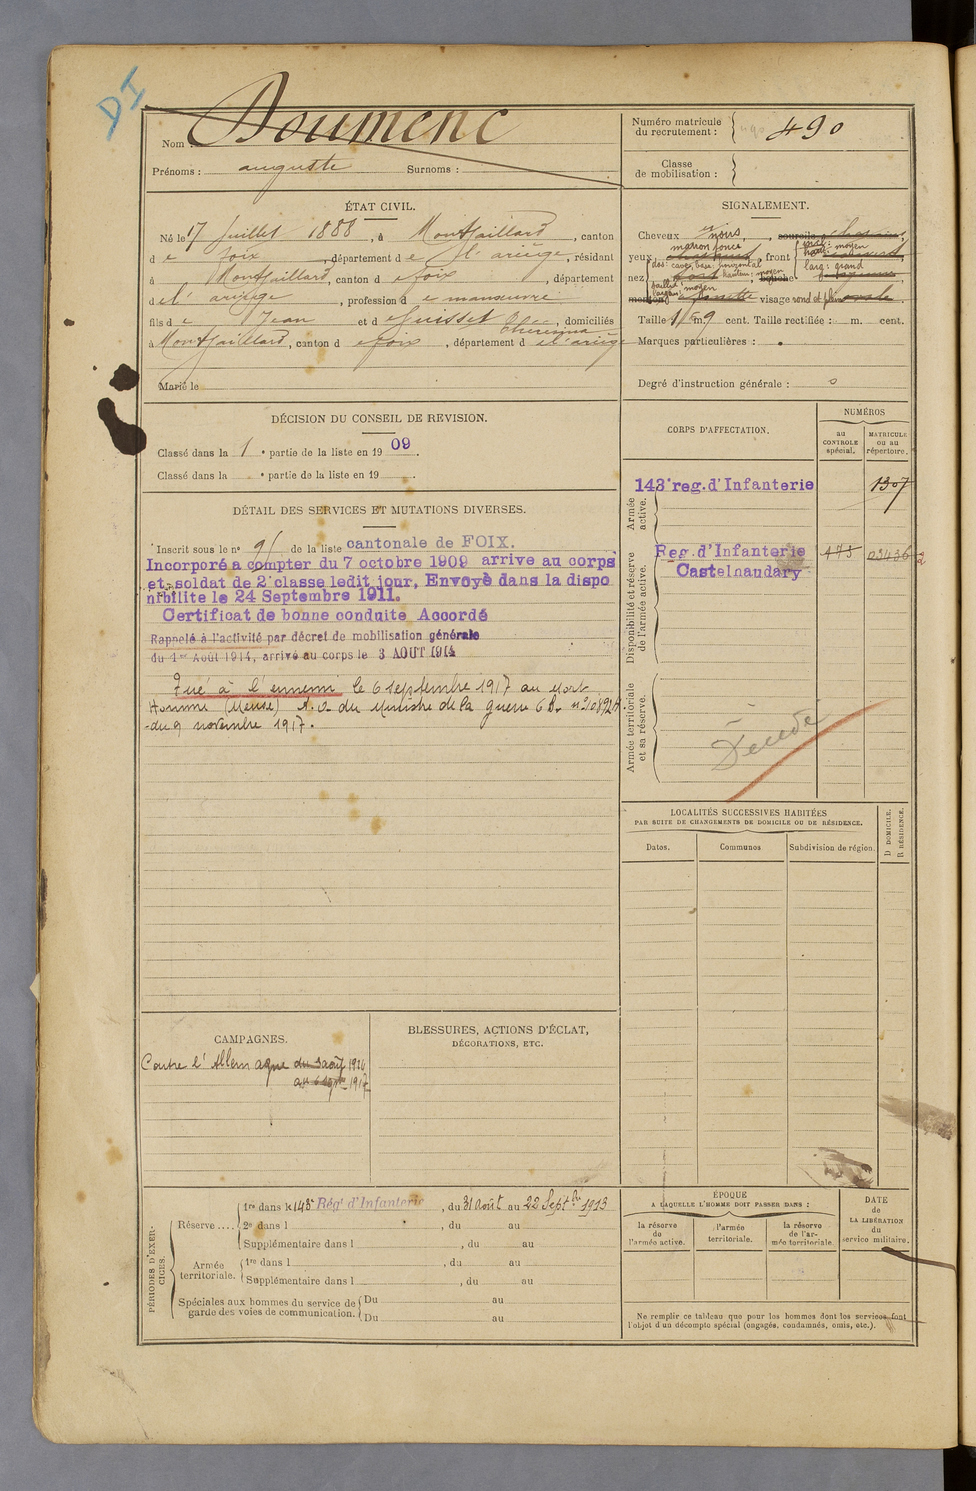 DI
Nom : Doumenc
Prénoms : auguste Surnoms :
Numéro matricule du recrutement : 490
Classe de mobilisation :
ÉTAT CIVIL.
Né le 17 Juillet 1888, à Montgaillard, canton
d e foix, département d e l'ariège, résidant
à Montgaillard, canton d e foix, département
d e l'ariège, profession d e manœuvre
fils d e Jean et d e Guisset Thérésina, domiciliés
à Montgaillard, canton d e foix, département d e l'ariège
Marié le
SIGNALEMENT.
Cheveux noirs, sourcils
marron foncé
yeux, front
haut: moyen
larg: grand
nez
dos: cave, base: horizontal
hauteur: moyen
saillie: moyen
largeur:
bouche
menton visage rond et plein ovale
Taille 1 m. cent. Taille rectifiée : m. cent.
Marques particulières :
Degré d'instruction générale : 0
DÉCISION DU CONSEIL DE REVISION.
Classé dans la 1e partie de la liste en 1909.
Classé dans la e partie de la liste en 19 .
DÉTAIL DES SERVICES ET MUTATIONS DIVERSES.
Inscrit sous le n° 91 de la liste cantonale de FOIX.
Incorporé a compter du 7 octobre 1909 arrive au corps
et soldat de 2e classe ledit jour, Envoyé dans la dispo
nibilite le 24 Septembre 1911.
Certificat de bonne conduite Accordé
Rappelé à l'activité par décret de mobilisation générale
du 1er Août 1914, arrivé au corps le 3 AOUT 1914
Tué à l'ennemi le 6 septembre 1917 au Mort
Homme (Meuse) A. v. du Ministre de la guerre
du 9 novembre 1917.
CORPS D'AFFECTATION.
NUMÉROS
au CONTROLE spécial.
MATRICULE ou au répertoire.
Armée active.
143e reg. d'Infanterie 1307
Disponibilité et réserve de l'armée active.
Reg. d'Infanterie 475 03436
Castelnaudary
Armée territoriale et sa réserve.
Décédé
LOCALITÉS SUCCESSIVES HABITÉES
PAR SUITE DE CHANGEMENTS DE DOMICILE OU DE RÉSIDENCE.
Dates. Communes Subdivision de région.
D DOMICILE. R RÉSIDENCE.
CAMPAGNES.
Contre l'Allemagne du 3 août 1914
au 6 sept 1917
BLESSURES, ACTIONS D'ÉCLAT,
DÉCORATIONS, ETC.
PÉRIODES D'EXERCICES.
Réserve ....
1re dans le 143e Régt d'Infanterie, du 31 Août au 22 Septbre 1913
2e dans l , du au
Supplémentaire dans l , du au
Armée territoriale.
1re dans l , du au
Supplémentaire dans l , du au
Spéciales aux hommes du service de garde des voies de communication.
Du au
Du au
ÉPOQUE
A LAQUELLE L'HOMME DOIT PASSER DANS :
la réserve de l'armée active.
l'armée territoriale.
la réserve de l'armée territoriale.
DATE de LA LIBÉRATION du service militaire.
Ne remplir ce tableau que pour les hommes dont les services font
l'objet d'un décompte spécial (engagés, condamnés, omis, etc.).